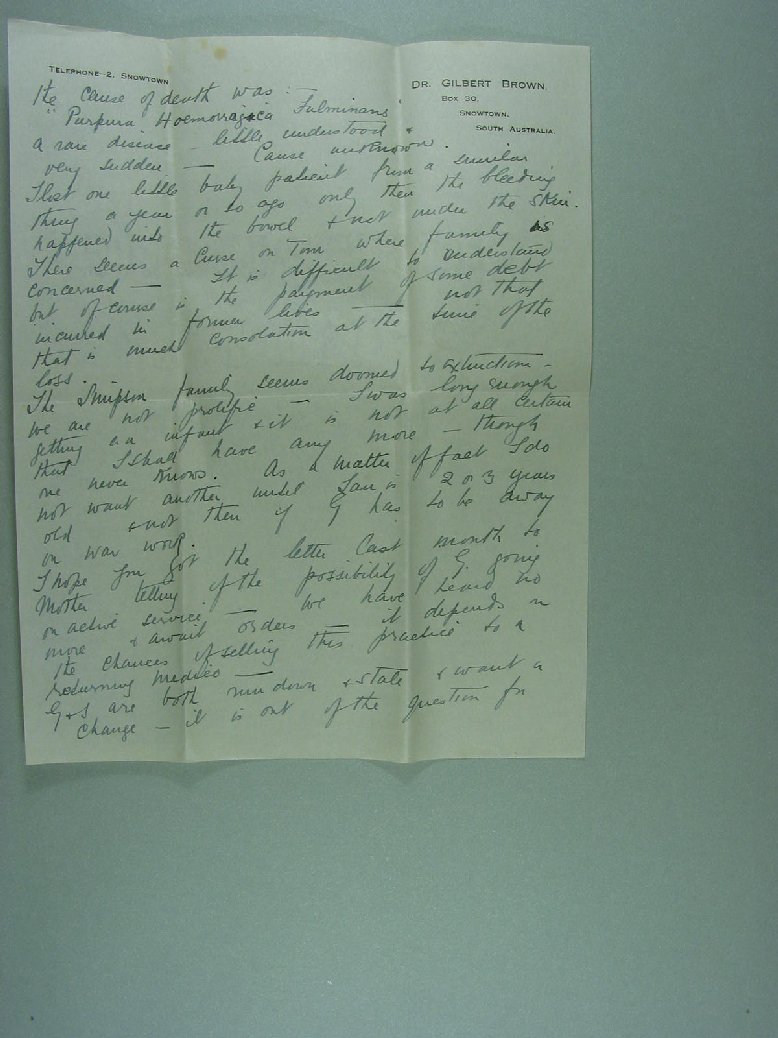 TELEPHONE 2, SNOWTOWN
DR. GILBERT BROWN.
BOX 30.
SNOWTOWN.
SOUTH AUSTRALIA.
The cause of death was :—
"Purpura Haemorragica Fulminans"
a rare disease – little understood &
very sudden — Cause unknown.
I lost one little baby patient from a similar
thing a year or so ago only then the bleeding
happened into the bowel & not under the skin.
There seems a Curse on Tom where family is
concerned — It is difficult to understand
but of course is the payment of some debt
incurred in former lives — not that
that is much consolation at the time of the
loss.
The Simpson family seems doomed to extinction –
we are not prolific — I was long enough
getting an infant & it is not at all certain
that I shall have any more — though
one never knows. As a matter of fact I do
not want another until Ian is 2 or 3 years
old & not then if G has to be away
on war work.
I hope you got the letter last month to
Mother telling of the possibility of G. going
on active service — we have heard no
more & await orders — it depends on
the chances of selling this practice to a
returning medico —
G & I are both run down & stale & want a
change — it is out of the question for